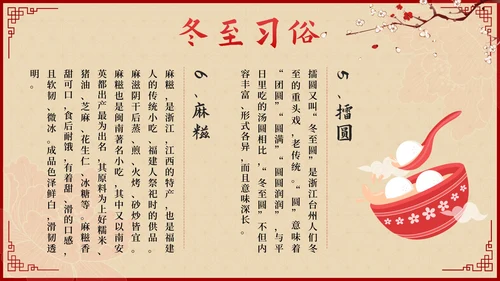 冬至习俗
5、擂圆
擂圆又叫“冬至圆”是浙江台州人们冬
至的重头戏，老传统。“圆”意味着
“团圆”“圆满”“圆圆润润”，与平
日里吃的汤圆相比，“冬至圆”不但内
容丰富，形式各异，而且意味深长。
6、麻糍
麻糍，是浙江，江西的特产，也是福建
人的传统小吃、福建人祭祀时的供品。
麻滋阴干后蒸、煎、火烤、砂炒皆宜。
麻糍也是闽南著名小吃，其中又以南安
英都出产最为出名，其原料为上好糯米、
猪油、芝麻、花生仁、冰糖等。麻糍香
甜可口，食后耐饿，有着甜、滑的口感，
且软韧、微冰。成品色泽鲜白，滑韧透
明。